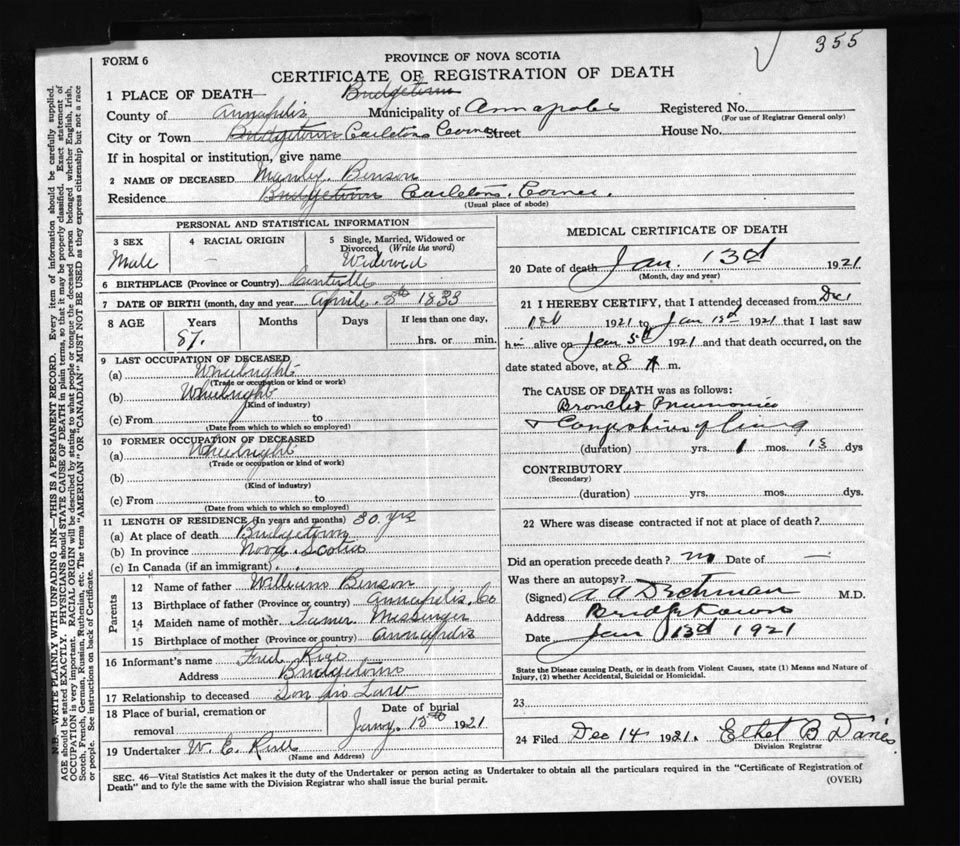 355
FORM 6
PROVINCE OF NOVA SCOTIA
CERTIFICATE OF REGISTRATION OF DEATH
1 PLACE OF DEATH— Bridgetown
County of Annapolis Municipality of Annapolis Registered No.
(For use of Registrar General only)
City or Town Bridgetown Carletons Corner Street House No.
If in hospital or institution, give name
2 NAME OF DECEASED Manley Binson
Residence Bridgetown Carletons Corner.
(Usual place of abode)
PERSONAL AND STATISTICAL INFORMATION
3 SEX Male
4 RACIAL ORIGIN —
5 Single, Married, Widowed or Divorced (Write the word) Widowed
6 BIRTHPLACE (Province or Country) Centrille
7 DATE OF BIRTH (month, day and year) Aprile 8th 1833
8 AGE Years Months Days If less than one day,
87. hrs. or min.
9 LAST OCCUPATION OF DECEASED
(a) Wheelright
(Trade or occupation or kind or work)
(b) Wheelright
(Kind of industry)
(c) From to
(Date from which to which so employed)
10 FORMER OCCUPATION OF DECEASED
(a) Wheelright
(Trade or occupation or kind of work)
(b)
(Kind of industry)
(c) From to
(Date from which to which so employed)
11 LENGTH OF RESIDENCE (In years and months) 30 yrs
(a) At place of death Bridgetown
(b) In province Nova Scotia
(c) In Canada (if an immigrant)
Parents
12 Name of father William Binson
13 Birthplace of father (Province or country) Annapolis. Co
14 Maiden name of mother Messinger
15 Birthplace of mother (Province or country) Annapolis
16 Informant's name Fred
Address Bridgetown
17 Relationship to deceased Son in Law
18 Place of burial, cremation or removal
Date of burial
Jany. 15th 1921
19 Undertaker W. E.
(Name and Address)
MEDICAL CERTIFICATE OF DEATH
20 Date of death Jan. 13d 1921
(Month, day and year)
21 I HEREBY CERTIFY, that I attended deceased from Dec 1
1921 to Jan 13d 1921 that I last saw
him alive on Jan 1921 and that death occurred, on the
date stated above, at 8 A m.
The CAUSE OF DEATH was as follows:
Broncho Pneumonia
& Congestion of lung
(duration) yrs. 1 mos. 13 dys
CONTRIBUTORY
(Secondary)
(duration) yrs. mos. dys.
22 Where was disease contracted if not at place of death?
Did an operation precede death? no Date of —
Was there an autopsy?
(Signed) A A Dechman M.D.
Address Bridgetown
Date Jan 13d 1921
State the Disease causing Death, or in death from Violent Causes, state (1) Means and Nature of Injury, (2) whether Accidental, Suicidal or Homicidal.
23
24 Filed Dec 14 1921. Ethel B
Division Registrar
SEC. 46—Vital Statistics Act makes it the duty of the Undertaker or person acting as Undertaker to obtain all the particulars required in the "Certificate of Registration of
Death" and to fyle the same with the Division Registrar who shall issue the burial permit.
(OVER)
N.B.—WRITE PLAINLY WITH UNFADING INK—THIS IS A PERMANENT RECORD. Every item of information should be carefully supplied.
AGE should be stated EXACTLY. PHYSICIANS should STATE CAUSE OF DEATH in plain terms, so that it may be properly classified. Exact statement of
OCCUPATION is very important. RACIAL ORIGIN will be described by stating to what people or tongue the deceased person belonged whether English, Irish,
Scotch, French, German, Russian, Ruthenian, etc. The terms "AMERICAN" OR "CANADIAN" MUST NOT BE USED as they express citizenship but not a race
or people. See instructions on back of Certificate.